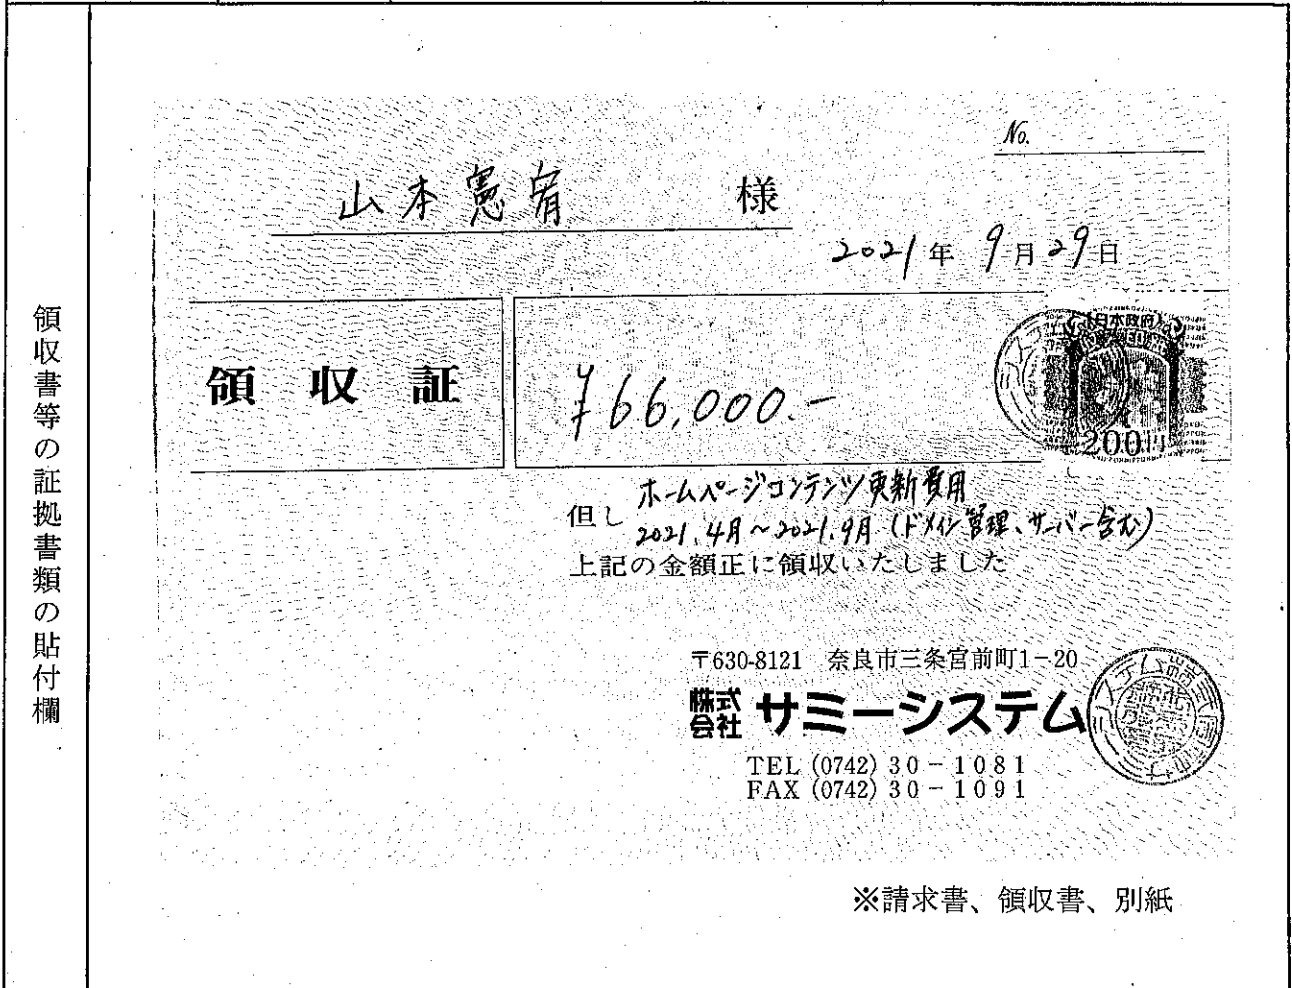 領収書等の証拠書類の貼付欄
No.
山本憲宥 様
2021年 9月29日
領収証
¥66,000.-
日本政府
200円
但し ホームページコンテンツ更新費用
2021.4月~2021.9月(ドメイン管理、サーバー含む)
上記の金額正に領収いたしました
〒630-8121 奈良市三条宮前町1-20
株式会社 サミーシステム
TEL (0742) 30-1081
FAX (0742) 30-1091
※請求書、領収書、別紙